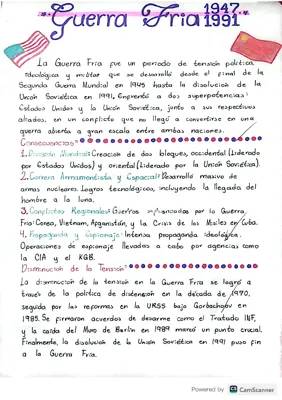 Guerra Fria 1947
1991
La Guerra Fria fue un periodo de tensión política,
ideológica y militar que se desarrolló desde el final de la
Segunda Guerra Mundial en 1945 hasta la disolución de la
Unión Soviética en 1991. Enfrentó a dos superpotencias:
Estados Unidos y la Unión Soviética, junto a sus respectivos
aliados, en un conflicto que no llegó a convertirse en una
guerra abierta a gran escala entre ambas naciones.
Consecuencias:
1. División Mundial: Creación de dos bloques, occidental (Liderado
por Estados Unidos) y oriental (Liderado por la Unión Soviética).
2. Carrera Armamentista y Espacial: Desarrollo masivo de
armas nucleares. Logros tecnológicos, incluyendo la llegada del
hombre a la luna.
3. Conflictos Regionales: Guerras por la Guerra
Fria: Corea, Vietnam, Afganistán, y la Crisis de los Misiles en Cuba.
4. Propaganda y Espionaje: Intensa propaganda ideológica.
Operaciones de espionaje llevadas a cabo por agencias como
la CIA y el KGB.
Disminución de la Tensión:
La disminución de la tensión en la Guerra Fria se logró a
través de la política de distensión en la década de 1970,
seguida por las reformas en la URSS bajo Gorbachov en
1985. Se firmaron acuerdos de desarme como el Tratado INF,
y la caída del Muro de Berlín en 1989 marcó un punto crucial.
Finalmente, la disolución de la Unión Soviética en 1991 puso fin
a la Guerra Fria.
Powered by CS CamScanner